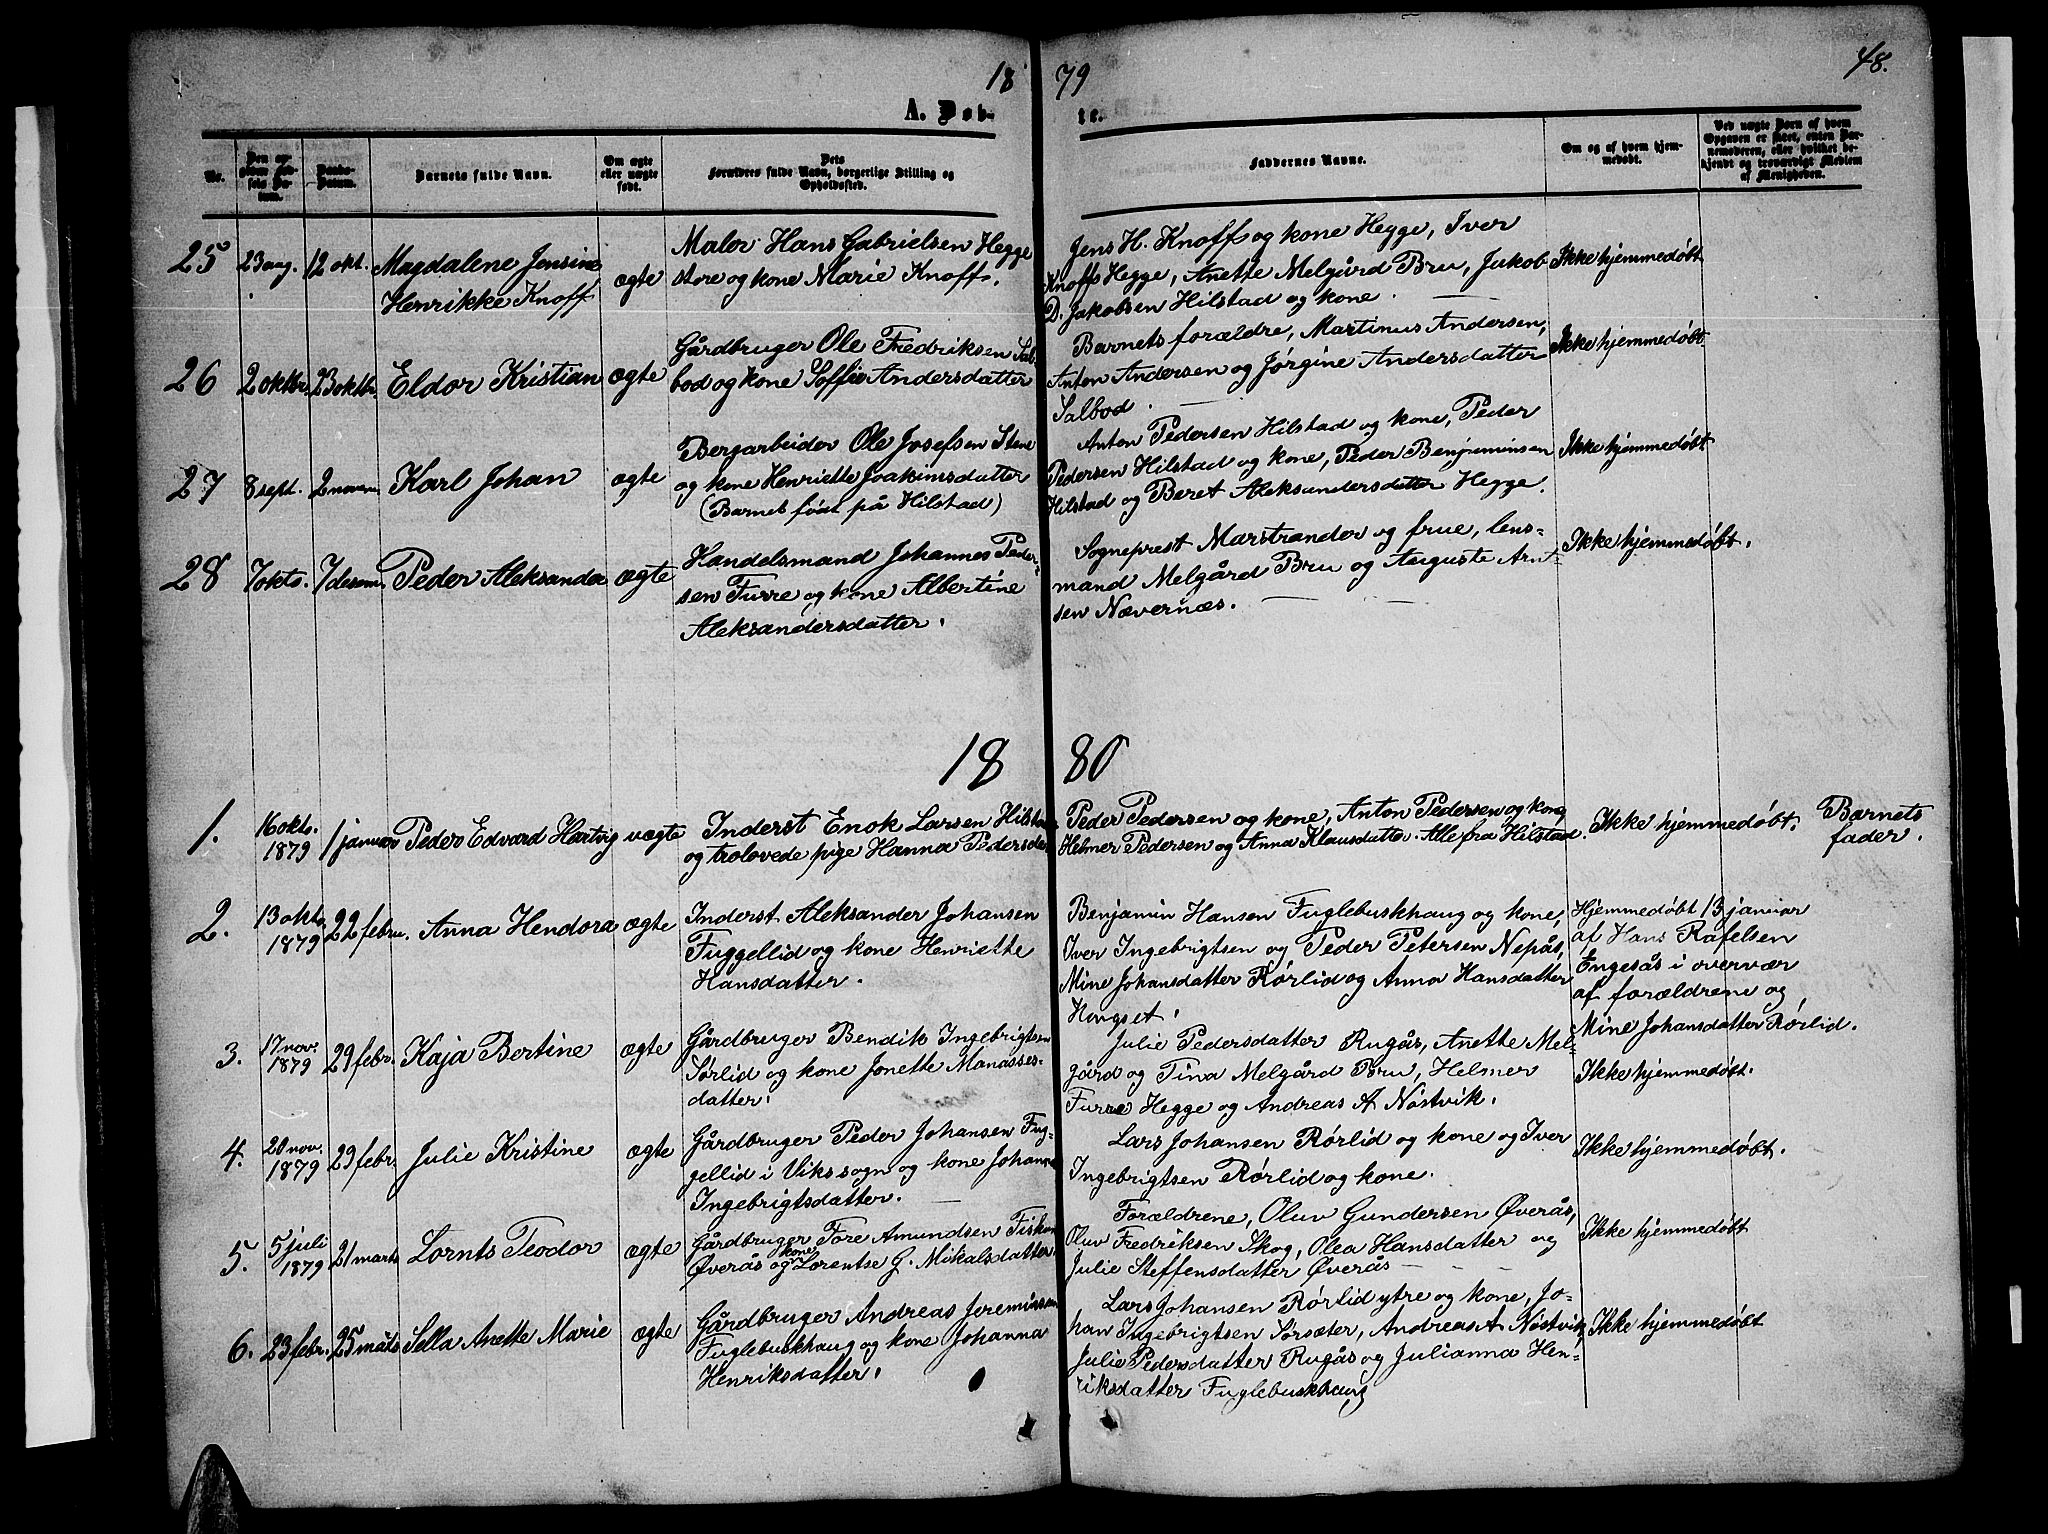 1879
48.
A. Døbte.
Nr.
Barnets fulde Navn.
Om ægte
eller uægte
født.
Forældres fulde Navn, borgerlige Stilling og
Opholdssted.
Faddernes Navne.
Om og af hvem hjem-
medøbt.
Ved uægte Børn af hvem
Opgaven er skeet, enten Bar-
nemoderen, eller hvilket be-
kjendt og troværdigt Medlem
af Menigheden.
25
23 aug.
12 okt.
Magdalene Jensine
Henrikke Knoff
ægte
Maler Hans Gabrielsen Hegge
store og kone Marie Knoff.
Jens H. Knoffs og kone Hegge, Iver
Knoffs Hegge, Anette Melgård Bru, Jakob
D. Jakobsen Hilstad og kone.
Ikke hjemmedøbt
26
2 oktbr.
23 oktbr.
Eldor Kristian
ægte
Gårdbruger Ole Fredriksen Sal-
bod og kone Soffie Andersdatter
Barnets forældre, Martinus Andersen,
Anton Andersen og Jørgine Andersdatter
Salbod.
Ikke hjemmedøbt.
27
8 sept.
2 novem
Karl Johan
ægte
Bergarbeider Ole Josefsen Stene
og kone Henriette Joakimsdatter
(Barnet født på Hilstad)
Anton Pedersen Hilstad og kone, Peder
Pedersen Hilstad og kone, Peder Benjaminsen
Hilstad og Beret Aleksandersdatter Hegge.
Ikke hjemmedøbt
28
7 okto.
7 desem
Peder Aleksander
ægte
Handelsmand Johannes Peder-
sen Furre og kone Albertine
Aleksandersdatter.
Sogneprest Marstrander og frue, lens-
mand Melgård Bru og Auguste Arnt-
sen Nævernæs.
Ikke hjemmedøbt.
1880
1.
16 okto.
1879
1 januar
Peder Edvard Hartvig
uægte
Inderst Enok Larsen Hilstad
og trolovede pige Hanna Pedersdat
Peder Pedersen og kone, Anton Pedersen og kone,
Helmer Pedersen og Anna Klausdatter. Alle fra Hilstad.
Ikke hjemmedøbt.
Barnets
fader.
2.
13 okto
1879
22 febru.
Anna Hendora
ægte
Inderst Aleksander Johansen
Fuggellid og kone Henriette
Hansdatter.
Benjamin Hansen Fuglebuskhaug og kone,
Iver Ingebrigtsen og Peder Petersen Nepås,
Mine Johansdatter Rørlid og Anna Hansdatter
Hongset.
Hjemmedøbt 13 januar
af Hans Rafelsen
Engesås i overvær
af forældrene og
Mine Johansdatter Rørlid.
3.
17 nov.
1879
29 febr.
Kaja Bertine
ægte
Gårdbruger Bendik Ingebrigtsen
Sørlid og kone Jonette Manasses-
datter.
Julie Pedersdatter Rugås, Anette Mel-
gård og Tina Melgård Bru, Helmer
Furre Hegge og Andreas A Nøstvik.
Ikke hjemmedøbt.
4.
20 nov.
1879
29 febr.
Julie Kristine
ægte
Gårdbruger Peder Johansen Fug-
gellid i Viks sogn og kone Johanna
Ingebrigtsdatter.
Lars Johansen Rørlid og kone og Iver
Ingebrigtsen Rørlid og kone.
Ikke hjemmedøbt.
5.
5 juli
1879
21 marts
Lornts Teodor
ægte
Gårdbruger Tore Amundsen Fisken
Øverås og kone Lorentse G. Mikalsdatter.
Forældrene, Oluv Gundersen Øverås,
Oluv Fredriksen Skog, Olea Hansdatter og
Julie Steffensdatter Øverås
Ikke hjemmedøbt
6.
23 febr.
25 mats
Sella Anette Marie
ægte
Gårdbruger Andreas Jeremiassen
Fuglebuskhaug og kone Johanna
Henriksdatter.
Lars Johansen Rørlid ytre og kone, Jo-
han Ingebrigtsen Sørsæter, Andreas A Nøstvik,
Julie Pedersdatter Rugås og Julianna Hen-
riksdatter Fuglebuskhaug
Ikke hjemmedøbt